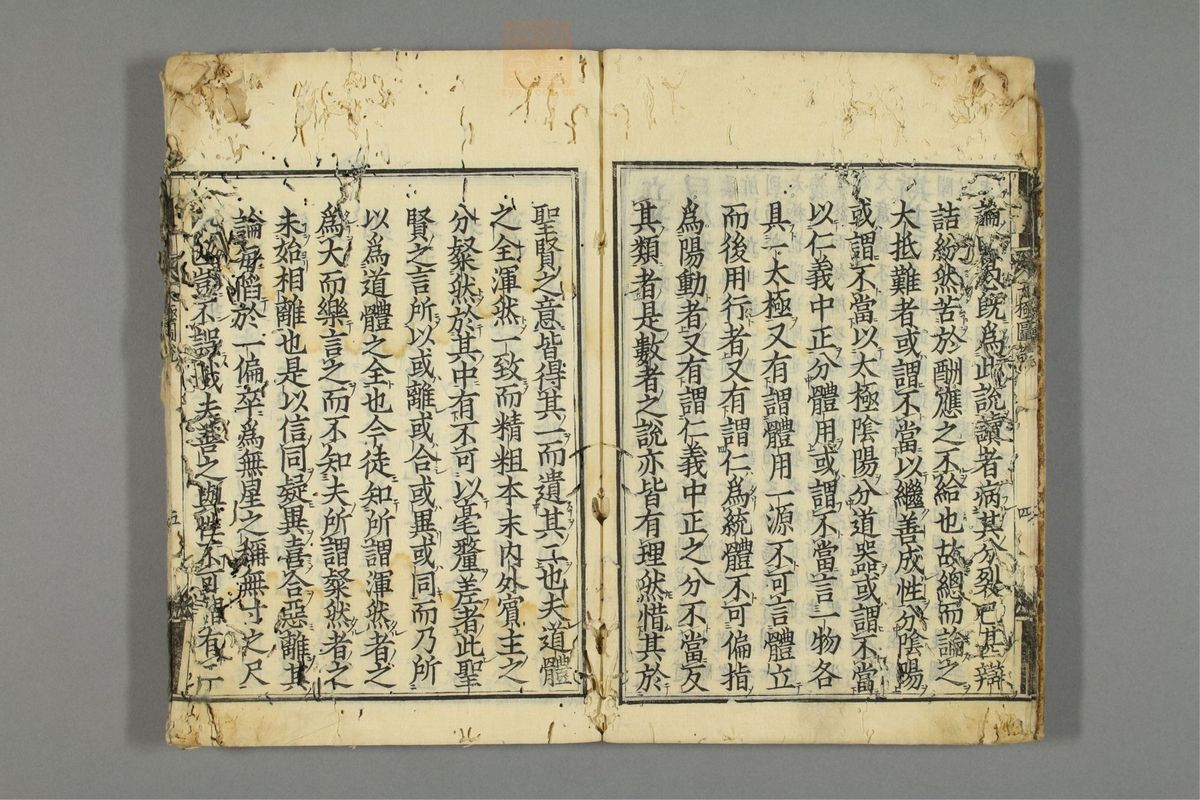 論曰愚既爲此說讀者病其分裂已甚辯
詰紛然苦於酬應之不給也故總而論之
大抵難者或謂不當以繼善成性分陰陽
或謂不當以太極陰陽分道器或謂不當
以仁義中正分體用或謂不當言一物各
具一太極又有謂體用一源不可言體立
而後用行者又有謂仁爲統體不可偏指
爲陽動者又有謂仁義中正之分不當反
其類者是數者之說亦皆有理然惜其於
聖賢之意皆得其一而遺其二也夫道體
之全渾然一致而精粗本末內外賓主之
分粲然於其中有不可以毫釐差者此聖
賢之言所以或離或合或異或同而乃所
以爲道體之全也今徒知所謂渾然者之
爲大而樂言之而不知夫所謂粲然者之
未始相離也是以信同疑異喜合惡離其
論每陷於一偏卒爲無星之稱無寸之尺
豈不誤哉夫善之與性不可謂有二
四
五